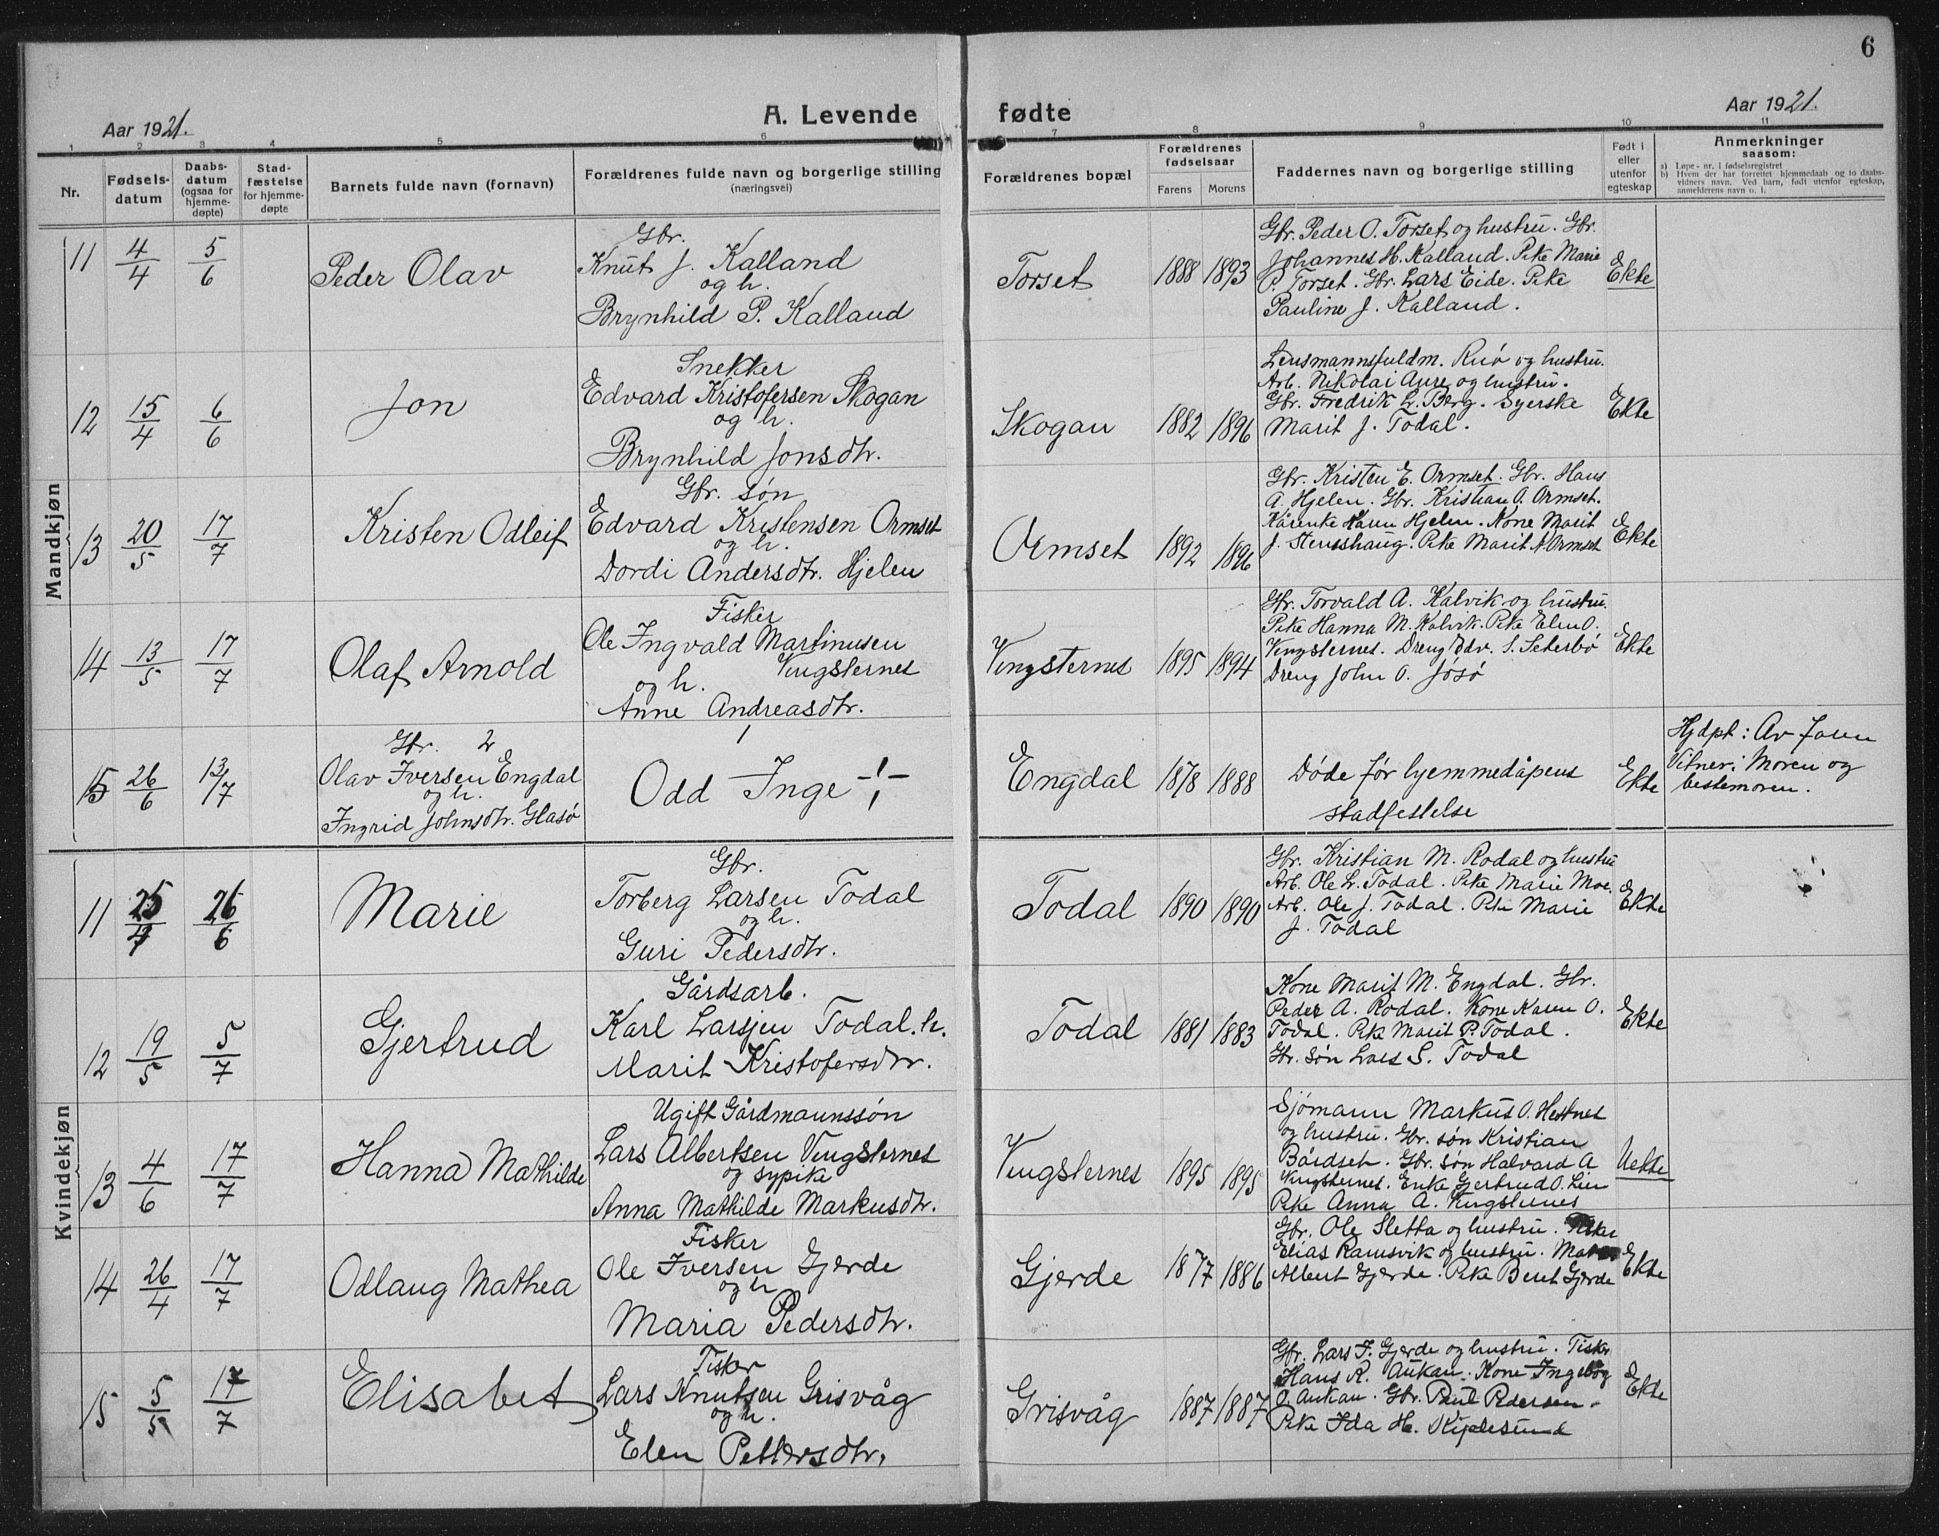 6
Aar 1921.
A. Levende fødte
Aar 1921.
1 2 3 4 5 6 7 8 9 10 11
Nr.
Fødsels-
datum
Daabs-
datum
(ogsaa for
hjemme-
døpte)
Stad-
fæstelse
for hjemme-
døpte
Barnets fulde navn (fornavn)
Forældrenes fulde navn og borgerlige stilling
(næringsvei)
Forældrenes bopæl
Forældrenes
fødselsaar
Farens Morens
Faddernes navn og borgerlige stilling
Født i
eller
utenfor
egteskap
Anmerkninger
saasom:
a) Løpe-nr. i fødselsregistret
b) Hvem der har forrettet hjemmedaab og to daabs-
vidners navn. Ved barn, født utenfor egteskap,
anmelderens navn o. l.
Mandkjøn
11 4/4 5/6 Peder Olav
Gbr.
Knut J. Kalland
og h.
Brynhild P. Kalland
Torset 1888 1893
Gbr. Peder O. Torset og hustru. Gbr.
Johannes H. Kalland. Pike Marie
P. Torset. Gbr. Lars Eide. Pike
Pauline J. Kalland.
Ekte
12 15/4 6/6 Jon
Snekker
Edvard Kristofersen Skogan
og h.
Brynhild Jonsdtr.
Skogan 1882 1896
Lensmannsfuldm. Ruø og hustru.
Arb. Nikolai Aure og hustru.
Gbr. Fredrik L. Berg. Syerske
Marit J. Todal.
Ekte
13 20/5 17/7 Kristen Odleif
Gbr. søn
Edvard Kristensen Ormset
og h.
Dordi Andersdtr. Hjelen
Ormset 1892 1896
Gbr. Kristen E. Ormset. Gbr. Hans
A. Hjelen. Gbr. Kristian O. Ormset.
Kårenke Karen Hjelen. Kone Marit
J. Stensshaug. Pike Marit A Ormset
Ekte
14 13/5 17/7 Olaf Arnold
Fisker
Ole Ingvald Martinusen
Vingsternes
og h.
Anne Andreasdtr.
Vingsternes 1895 1894
Gbr. Torvald A. Kalvik og hustru.
Pike Hanna M. Kalvik. Pike Elen O.
Vingsternes. Dreng Edv. S. Seterbø
Dreng John O. Jøsø
Ekte
15 26/6 13/7
Gbr. 2
Olav Iversen Engdal
og h.
Ingrid Johnsdtr. Glasø
1
Odd Inge
Engdal 1878 1888
Døde før hjemmedåpens
stadfestelse
Ekte
Hjdpt: Av faren
Vitner: Moren og
bestemoren.
Kvindekjøn
11 25/4 26/6 Marie
Gbr.
Torberg Larsen Todal
og h.
Guri Pedersdtr.
Todal 1890 1890
Gbr. Kristian M. Rodal og hustru
Arb. Ole L. Todal. Pike Marie Moe.
Arb. Ole J. Todal. Pike Marie
J. Todal
Ekte
12 19/5 5/7 Gjertrud
Gårdsarb.
Karl Larsen Todal. h.
Marit Kristofersdtr.
Todal 1881 1883
Kone Marit M. Engdal. Gbr.
Peder A. Rodal. Kone Karen O.
Todal. Pike Marit P. Todal.
Gbr. søn Lars S. Todal
Ekte
13 4/6 17/7 Hanna Mathilde
Ugift Gårdmannssøn
Lars Albertsen Vingsternes
og sypike
Anna Mathilde Markusdtr.
Vingsternes 1895 1895
Sjømann Markus O. Hestnes
og hustru. Gbr. søn Kristian
Bårdset. Gbr. søn Halvard A
Vingsternes. Enke Gjertrud O. Lien
Pike Anna A. Vingsternes
Uekte
14 26/4 17/7 Odlaug Mathea
Fisker
Ole Iversen Gjerde
og h
Maria Pedersdtr.
Gjerde 1877 1886
Gbr. Ole Sletta og hustru. Fisker
Elias Ramsvik og hustru.
Albert Gjerde. Pike Berit Gjerde
Ekte
15 5/5 17/7 Elisabet
Fisker
Lars Knutsen Grisvåg
og h.
Elen Pettersdtr.
Grisvåg 1887 1887
Gbr. Lars I. Gjerde og hustru. Fisker
Hans R. Aukan. Kone Ingeborg
O. Aukan. Gbr. Paul Pedersen.
Pike Ida H. Kiplesund
Ekte